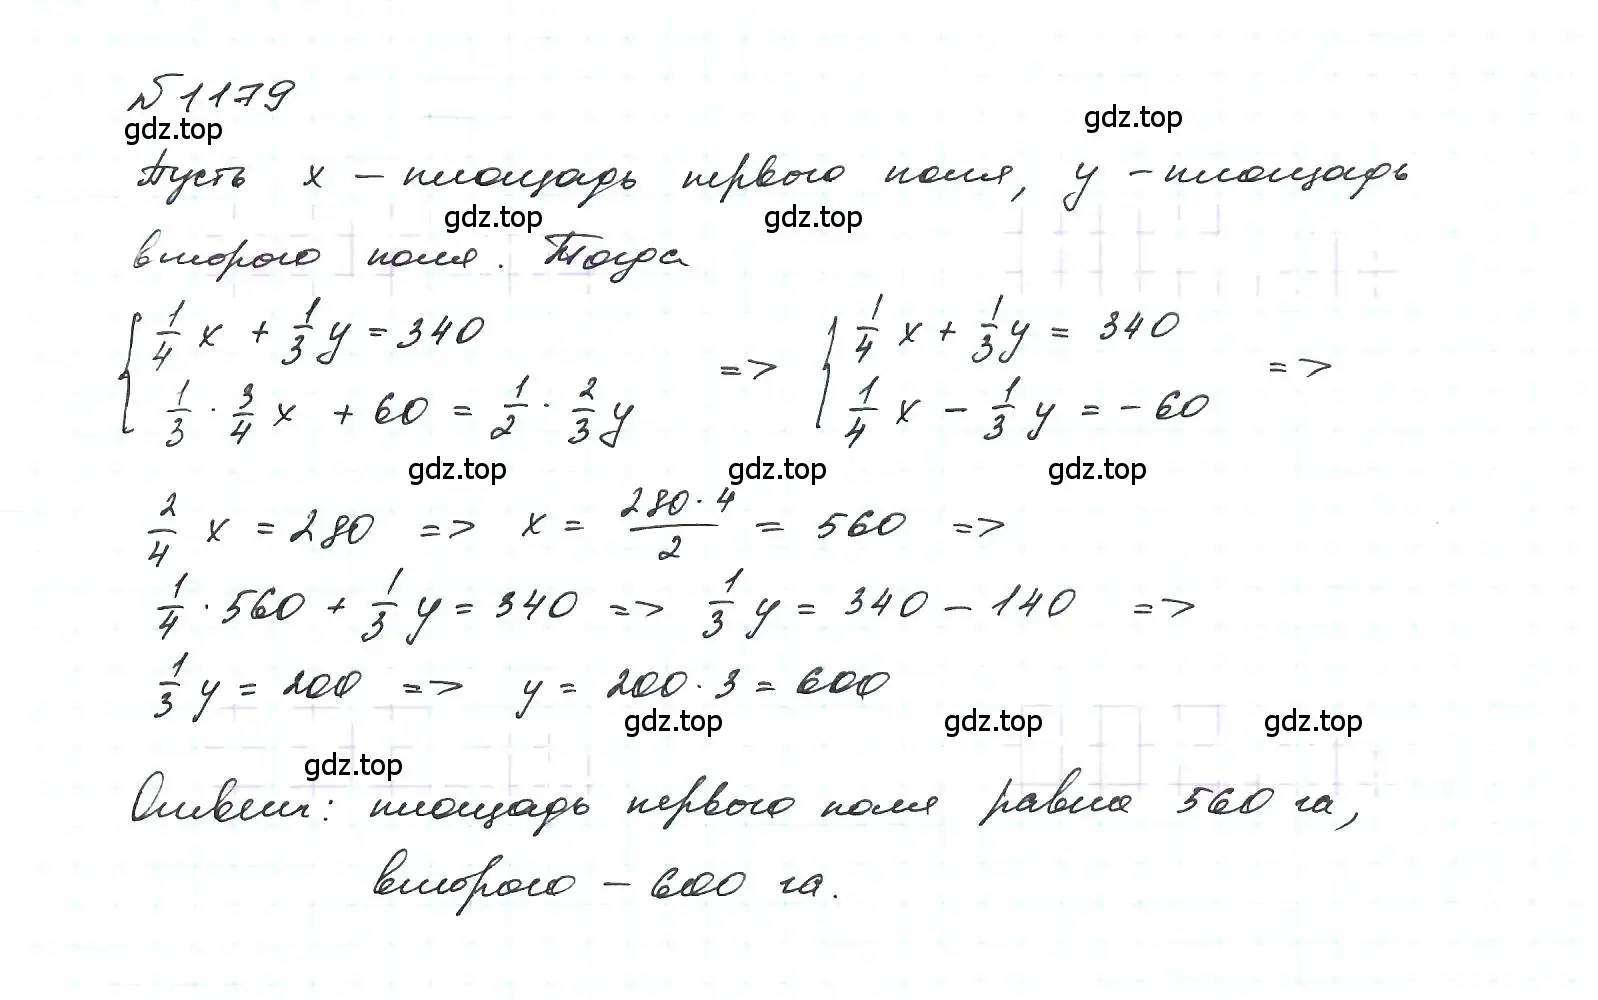 №1179
gdz.top gdz.top
Пусть x – площадь первого поля, y – площадь
gdz.top gdz.top
второго поля. Тогда
{ 1/4 x + 1/3 y = 340 => { 1/4 x + 1/3 y = 340 =>
1/3 · 3/4 x + 60 = 1/2 · 2/3 y 1/4 x – 1/3 y = –60
gdz.top gdz.top gdz.top
2/4 x = 280 => x = 280·4/2 = 560 =>
1/4 · 560 + 1/3 y = 340 => 1/3 y = 340 – 140 =>
1/3 y = 200 => y = 200·3 = 600
gdz.top gdz.top gdz.top
gdz.top
Ответ: площадь первого поля равна 560 га,
второго – 600 га.